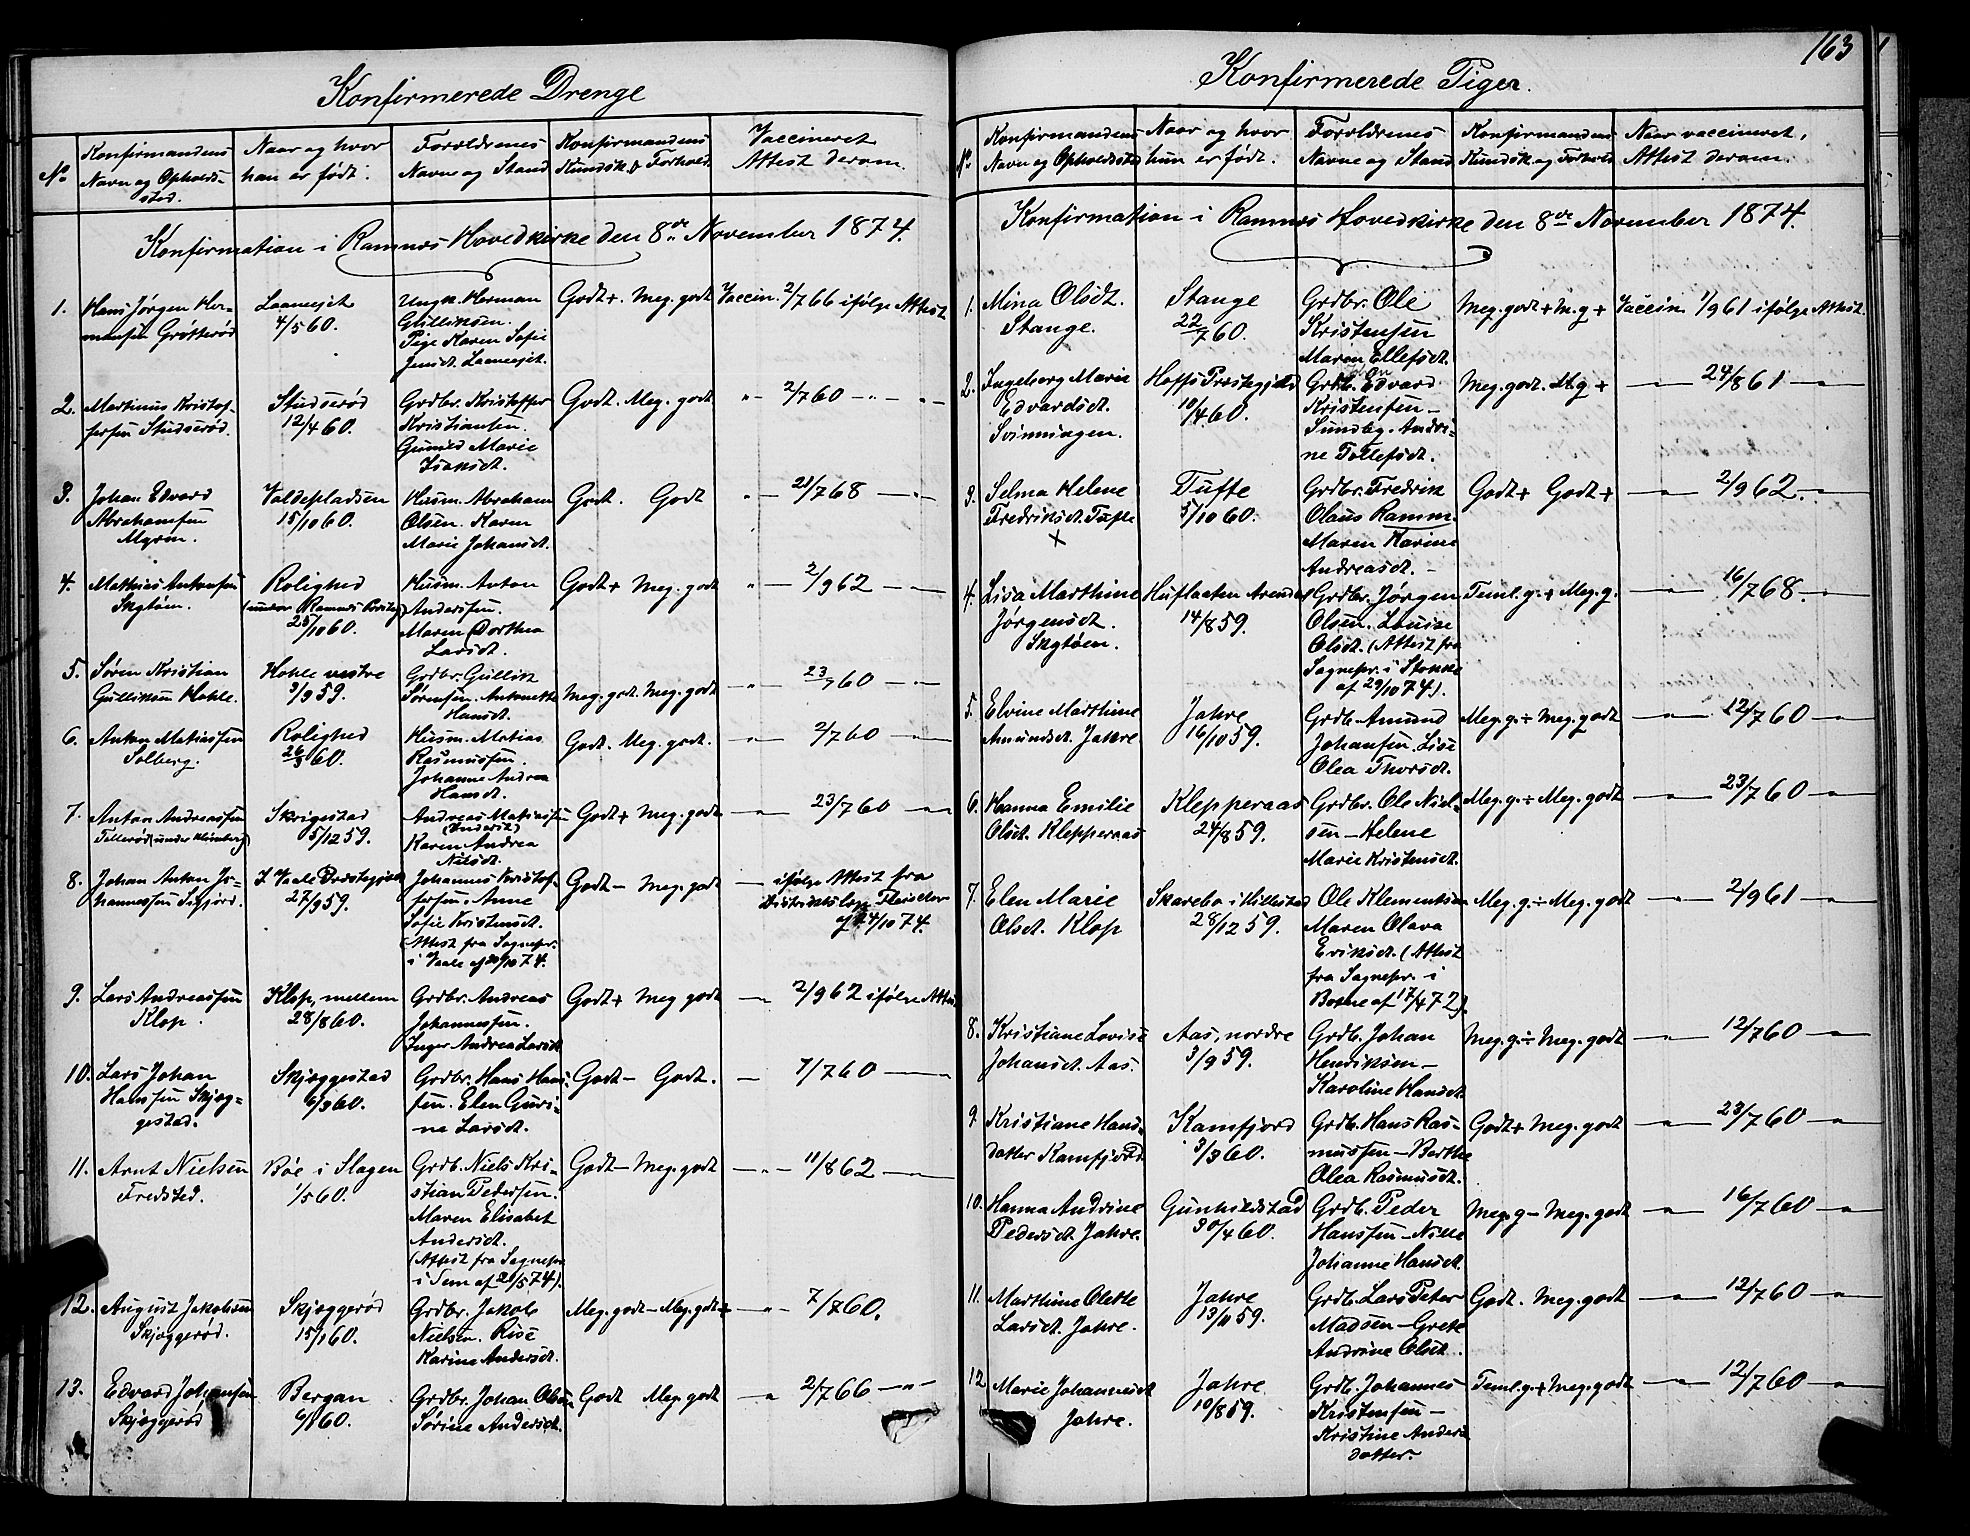 163
Konfirmerede Drenge
No
Konfirmandens
Navn og Opholds-
sted.
Naar og hvor
han er født.
Forældrenes
Navne og Stand
Konfirmandens
Kundsk. & Forhold
Vaccineret
Attest derom.
Konfirmation i Ramnes Hovedkirke den 8de November 1874.
1. Hans Jørgen Her-
mansen Grøtterød
4/5 60.
Ungk. Herman
Gulliksen.
Pige Karen Sofie
Jensdt.
Godt+. Meg. godt
Vaccin. 2/7 66 ifølge Attest
2. Martinus Kristof-
fersen Studserød.
Studserød
12/4 60.
Grdbr. Kristoffer
Kristiansen.
Gunild Marie
Isaksdt.
Godt. Meg. godt
" — 2/7 60 — " —
3. Johan Edvard
Abrahamsen
Myren.
Valdepladsen
15/10 60.
Husm. Abraham
Olsen. Karen
Marie Johansdt.
Godt. Godt
" — 21/7 68 — " —
4. Mathias Antonsen
Rolighed
(under Ramnes Presteg)
25/10 60.
Husm. Anton
Anderssen.
Maren Dorthea
Larsdt.
Godt+ Meg. godt
" — 2/9 62 — " —
5. Søren Kristian
Gulliksen Hohle.
Hohle vestre
3/9 59.
Grdbr. Gullik
Sørensen. Antonette
Hansdt.
Meg. godt. Meg. godt
6. Anton Matiassen
Solberg.
Rolighed
26/3 60.
Husm. Matias
Rasmussen.
Johanne Andrea
Hansdt.
Godt. Meg. godt.
— 2/7 60 —
7. Anton Andreassen
Skrigestad
5/12 59.
Andreas Matiassen
Karen Andrea
Nilsdt.
Godt+ Meg. godt
— 23/7 60 —
8. Johan Anton Jo-
hannessen
I Vaale Prestegjeld
27/9 59.
Johannes Kristof-
fersen. Anne
Sofie Kristensdt.
(Attest fra Sognepr.
i Vaale af 20/10 74.
Godt— Meg. godt
— ifølge Attest fra
Distriktslæge
9. Lars Andreassen
Klop.
Klop, mellem
28/8 60.
Grdbr. Andreas
Johannessen.
Inger Andrea Larsdt
Godt+ Meg godt
— 2/9 62 ifølge Attest
10. Lars Johan
Hanssen Skjæg-
gestad.
Skjæggestad
6/3 60.
Grdbr. Hans Hans-
sen. Elen Guri-
ne Larsdt.
Godt— Godt.
— 7/7 60 —
11. Arnt Nielsen
Fredsted.
Bøe i Slagen
1/5 60.
Grdb. Niels Kri-
stian Pedersen.
Maren Elisabet
Andersdt.
(Attest fra Sognepr
i Sem af 21/5 74).
Godt— Meg. godt
— 11/8 62 —
12. August Jakobsen
Skjæggerød.
Skjæggerød
15/1 60.
Grdbr. Jakob
Nielsen. Rise
Karine Andersdt.
Meg. godt— Meg. godt+
— " — 7/7 60.
13. Edvard Johansen
Skjæggerød
Bergan
6/1 60.
Grdbr. Johan Olsen
Sørine Andersdt.
Godt Meg. godt
— 2/7 66 — " —
Konfirmerede Piger.
No.
Konfirmandens
Navn og Opholdssted
Naar og hvor
hun er født.
Forældrenes
Navne og Stand
Konfirmandens
Kundsk. og Forhold
Naar vaccineret,
Attest derom.
Konfirmation i Ramnes Hovedkirke den 8de November 1874.
1. Mina Olsdt.
Stange.
Stange
22/7 60.
Grdbr. Ole
Kristensen
Maren Ellefsdt.
Meg. godt+ M. g+
Vaccin 1/9 61 ifølge Attest.
2. Ingeborg Marie
Edvardsdt.
Svinningen.
Hoffs Prestegjeld
10/4 60.
Grdb. Edvard
Kristensen —
Sundby. Andri-
ne Tollefsdt.
Meg. godt. M. g +
— 24/8 61 —
3. Selma Helene
Fredriksdt. Tufte
x
Tufte
5/10 60.
Grdbr. Fredrik
Olaus Ramm.
Maren Karine
Andreasdt. —
Godt+ Godt+
— 2/9 62. —
4. Lisa Marthine
Jørgensdt.
14/8 59.
Grdbr. Jørgen
Olsen. Louise
Olsdt. (Attest fra
Sognepr. i Stokke
af 29/10 74).
Teml. g. + Meg. g.
— 16/7 68. —
5. Elvine Marthine
Amundsdt. Jahre
Jahre
16/10 59.
Grdb. Amund
Johansen. Lise
Olea Thorsdt.
Meg. g. ÷ Meg. godt
— 12/7 60 —
6. Hanna Emilie
Olsdt. Klepperaas
Klepperaas
24/8 59.
Grdbr. Ole Niel-
sen — Helene
Marie Kristensdt.
Meg. g. ÷ Meg. godt
— 23/7 60 —
7. Elen Marie
Olsdt. Klop
Skarebo i Hillestad
28/12 59.
Ole Klementsen
Maren Olava
Eriksdt. (Attest
fra Sognepr. i
Botne af 17/4 72).
Meg. g. ÷ Meg. godt
— 2/9 61 —
8. Kristiane Lovise
Johansdt. Aas.
Aas, nordre
3/9 59.
Grdb. Johan
Henriksen —
Karoline Hansdt.
Meg. g. ÷ Meg. godt
— 12/7 60 —
9. Kristiane Hans-
datter Kamfjord
Kamfjord
3/3 60.
Grdb. Hans Ras-
mussen — Berthe
Olea Rasmusdt.
Godt+ Meg. godt
— 23/7 60 —
10. Hanna Andrine
Pedersdt Jahre.
Gunhildstad
30/4 60.
Grdb. Peder
Hanssen — Nille
Johanne Hansdt.
Meg. g — Meg. godt
— 16/7 60 —
11. Marthine Olette
Larsdt. Jahre.
Jahre
Grdb. Lars Peter
Madsen — Grete
Andrine Olsdt.
Godt. Meg. godt
— 12/7 60 —
12 Marie Johannesdt
Jahre.
Jahre
10/8 59.
Grdb. Johannes
Kristensen —
Kristine Anders
datter.
Teml. g. + Meg. godt
— 12/7 60 —